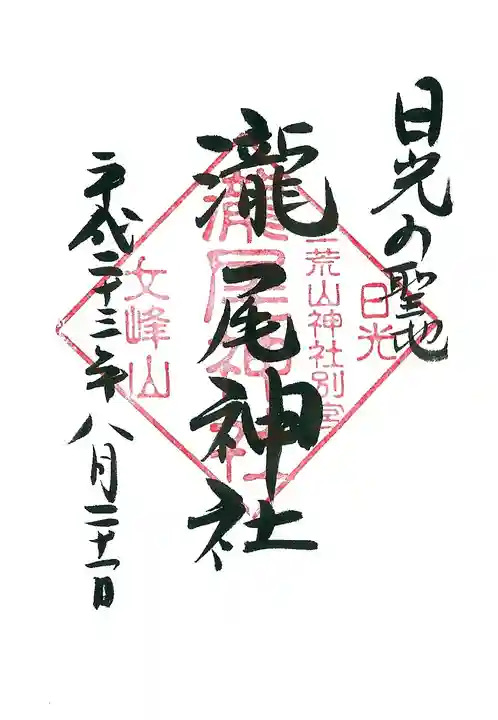 日光の聖地
日光
二荒山神社別宮
瀧尾神社
瀧尾神社
女峰山
平成二十三年八月二十一日